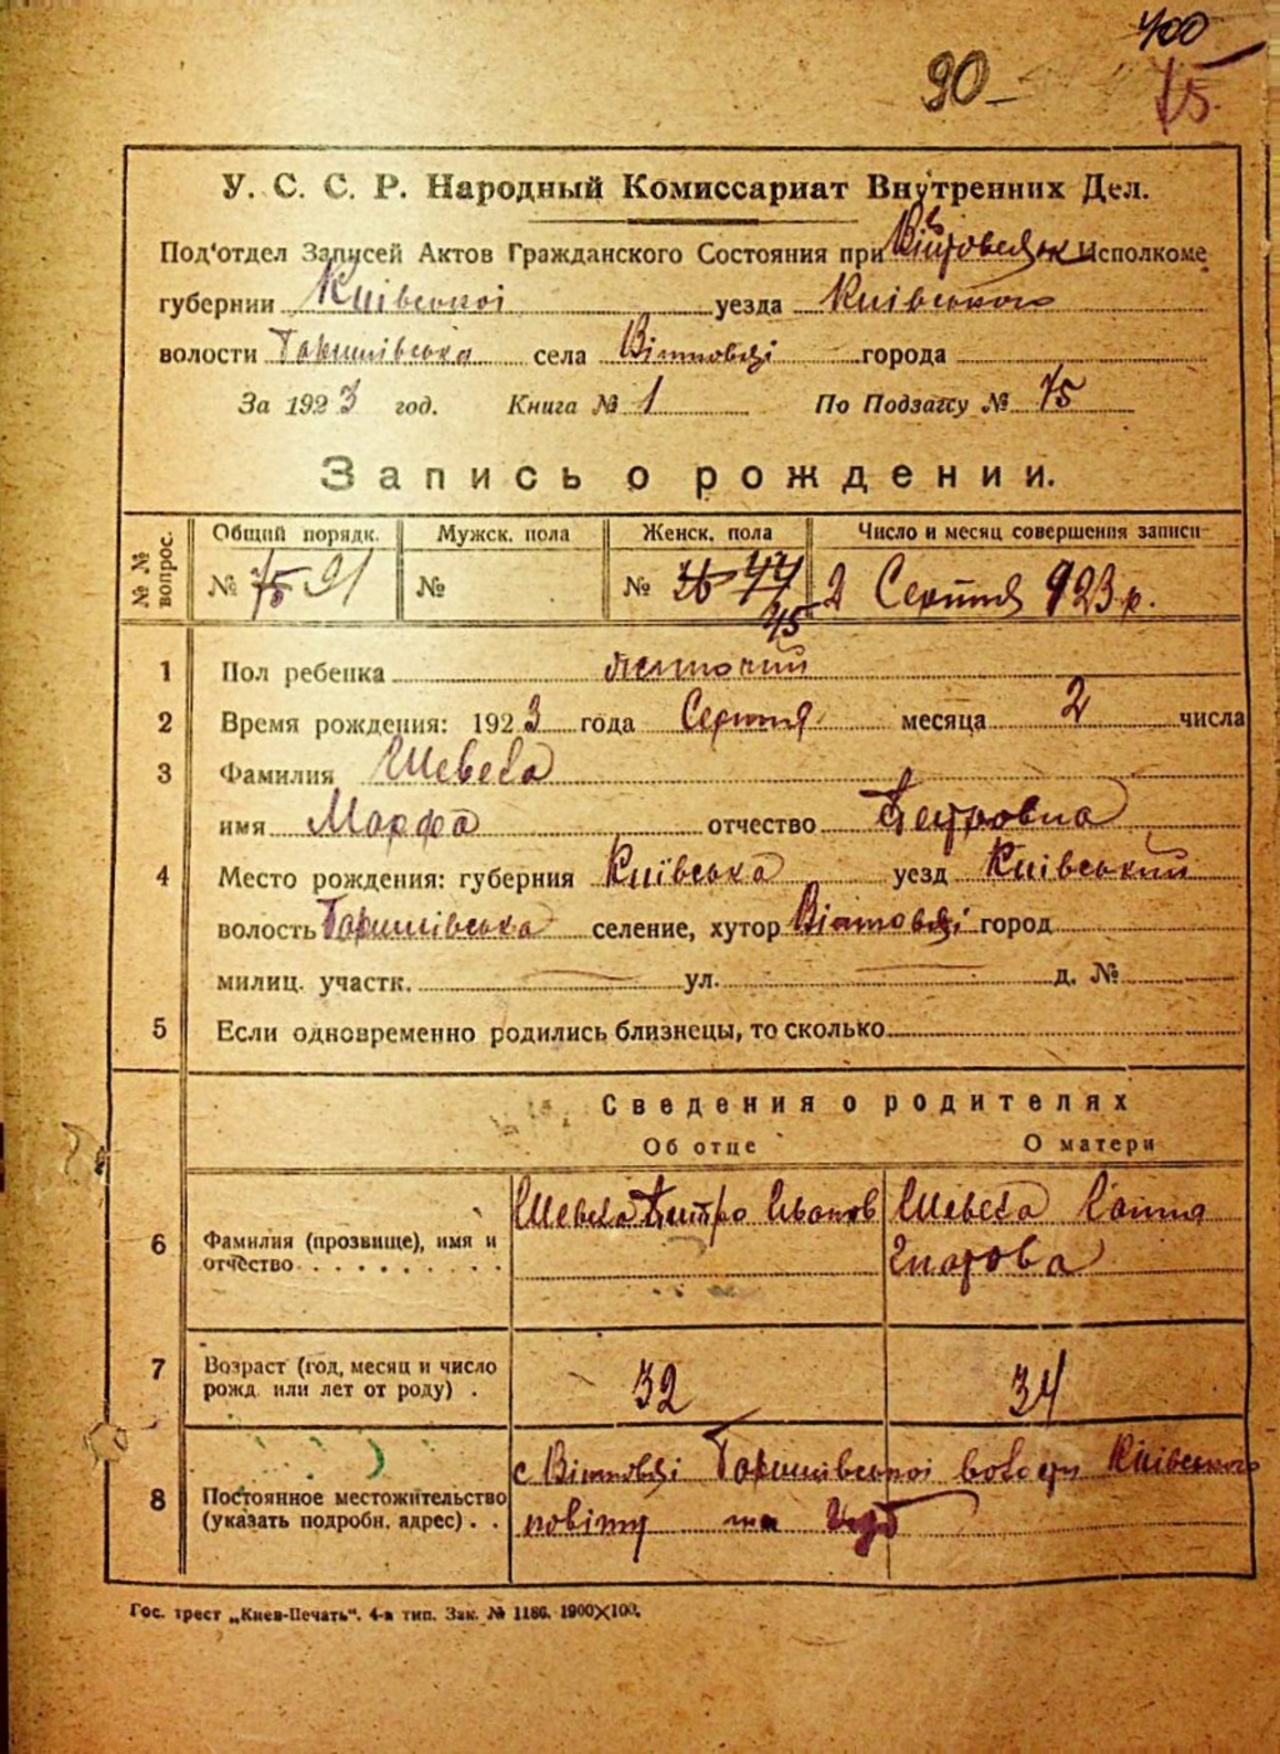 400
90-
75.
У. С. С. Р. Народный Комиссариат Внутренних Дел.
Под'отдел Записей Актов Гражданского Состояния при Исполкоме
губернии Київської уезда Київського
волости села города
За 1923 год. Книга № 1 По Подзагсу № 75
Запись о рождении.
№ № вопрос. Общий порядк. Мужск. пола Женск. пола Число и месяц совершения записи
№ 75 91 № № 44 2 Серпня 923 р.
45
1 Пол ребенка жіночий
2 Время рождения: 1923 года Серпня месяца 2 числа
3 Фамилия Шевела
имя Марфа отчество Петровна
4 Место рождения: губерния Київська уезд Київський
волость селение, хутор город
милиц. участк. ул. д. №
5 Если одновременно родились близнецы, то сколько
Сведения о родителях
Об отце О матери
Шевела Иванов Шевела
6 Фамилия (прозвище), имя и
отчество
7 Возраст (год, месяц и число
рожд. или лет от роду) . 32 34
с волости Київського
8 Постоянное местожительство
(указать подробн. адрес) . . повіту та
Гос. трест „Киев-Печать". 4-я тип. Зак. № 1186. 1900X100.